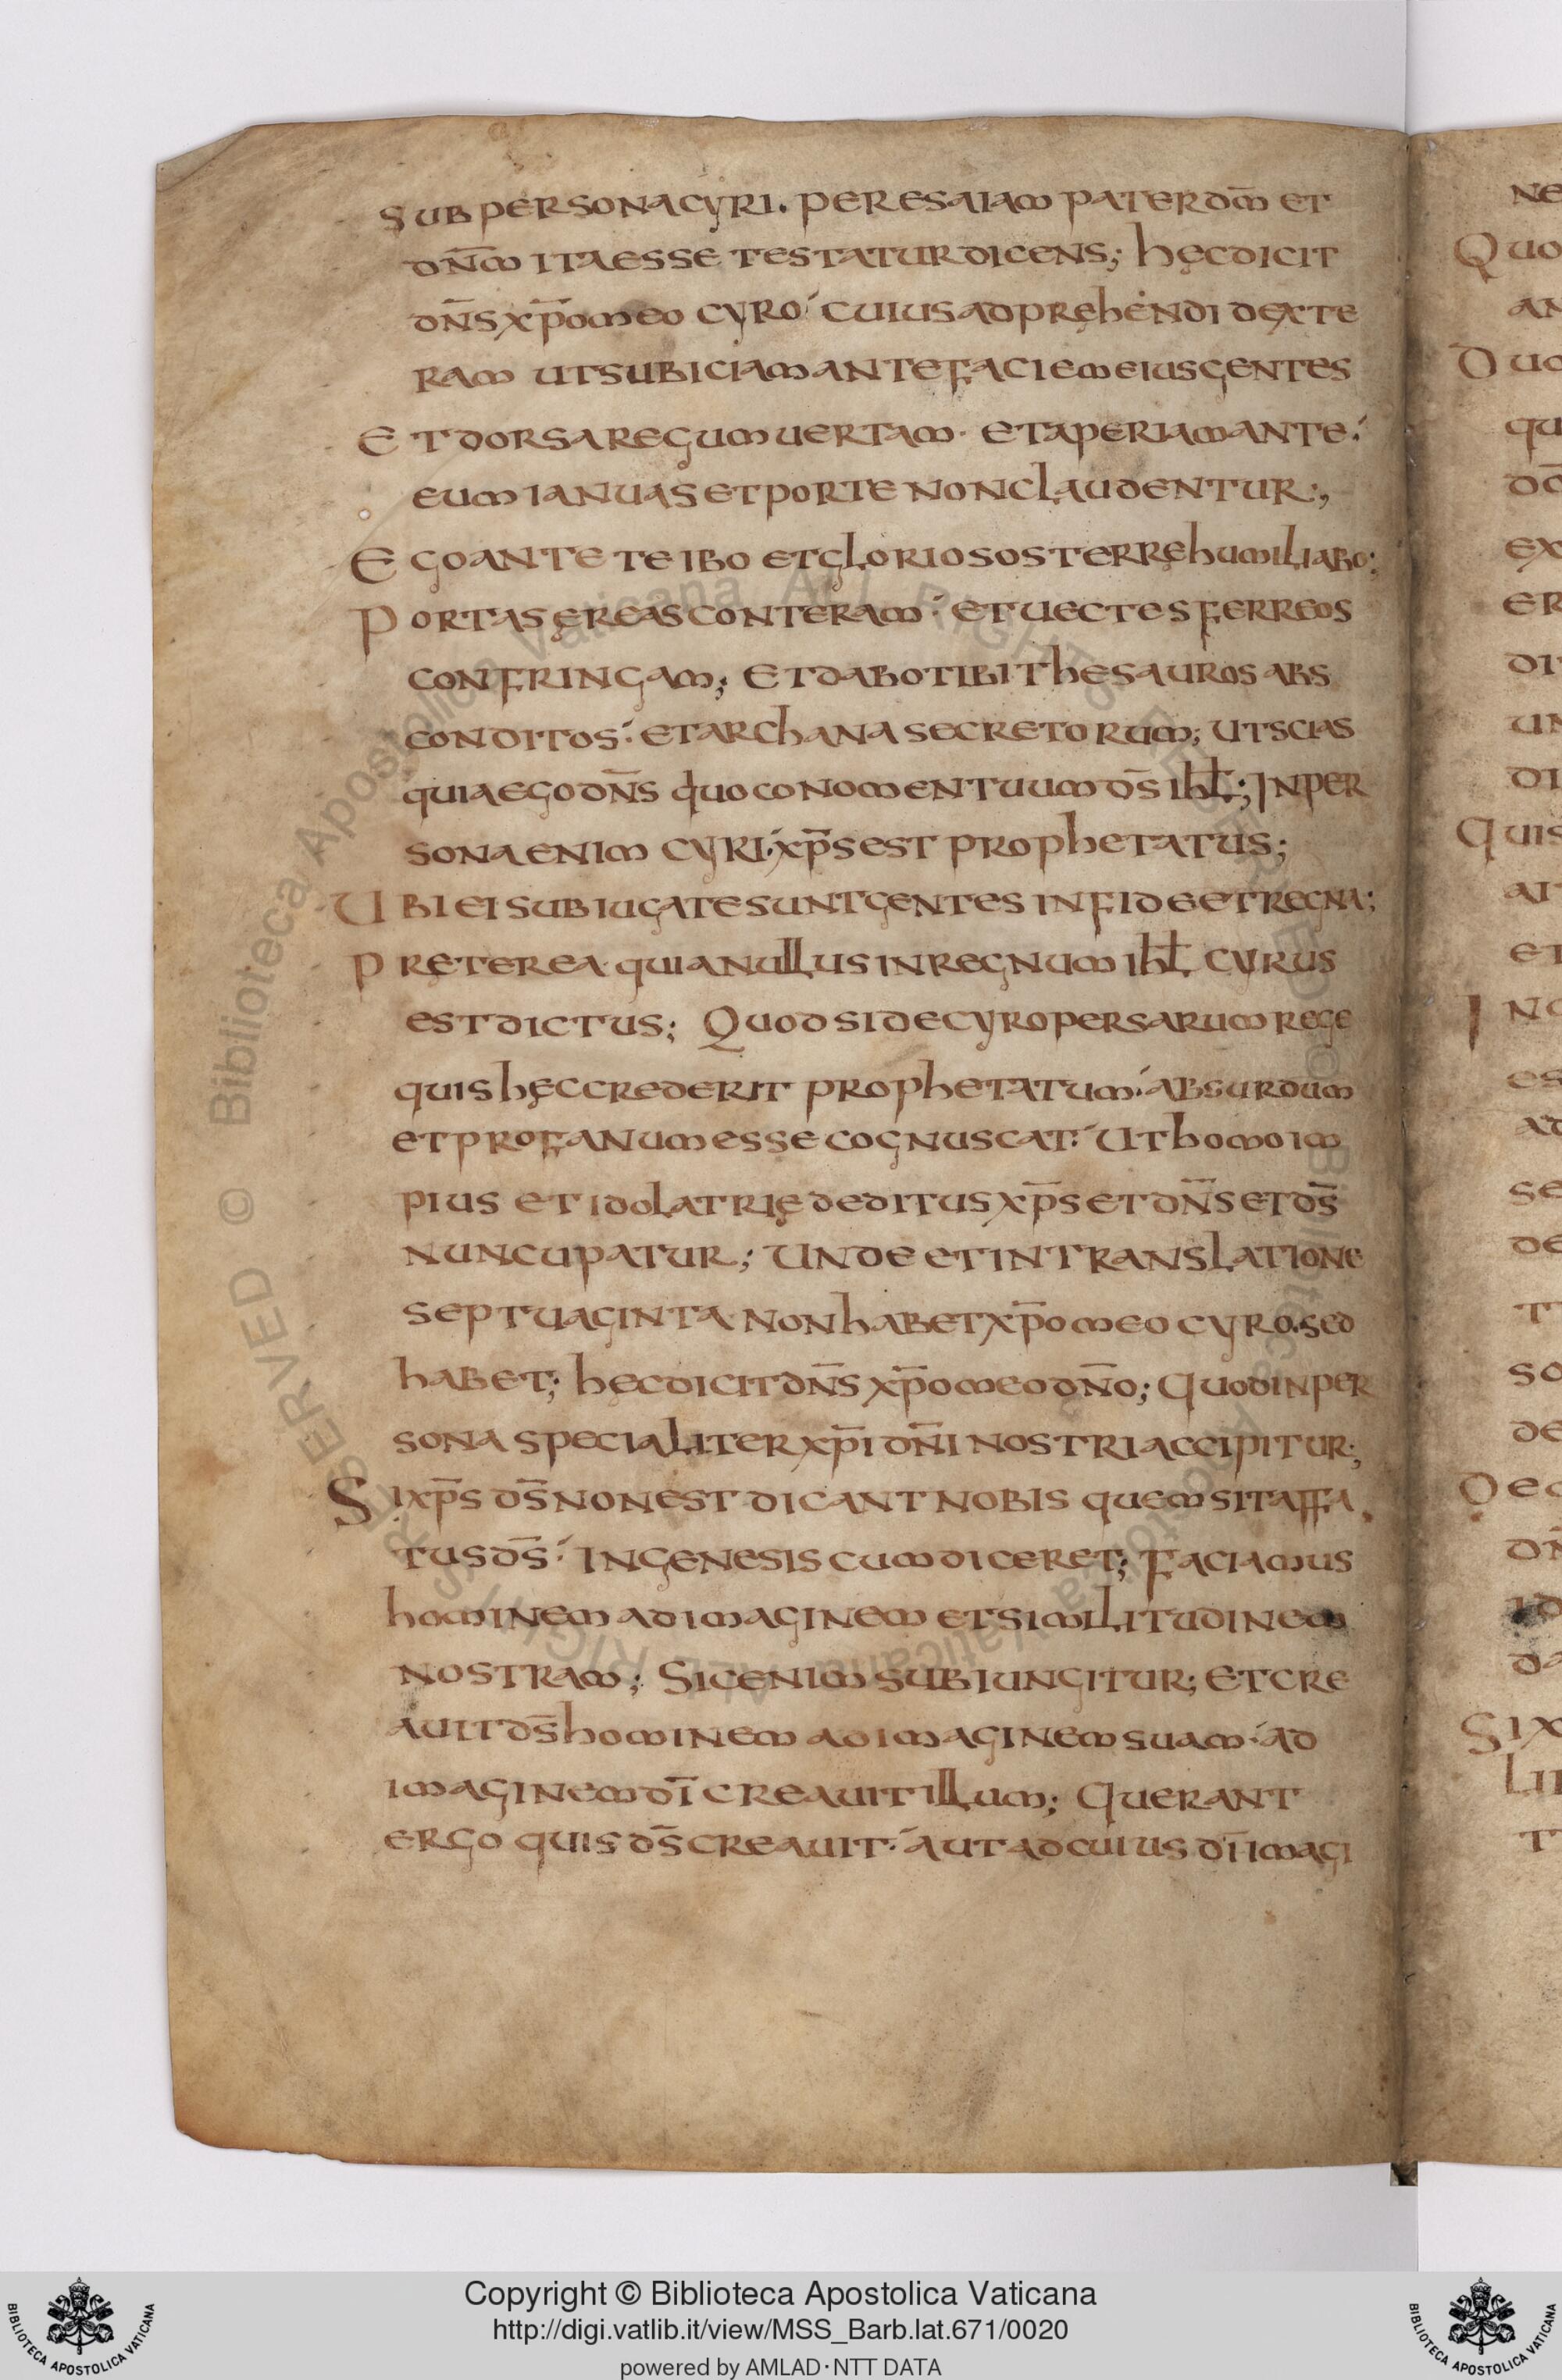 sub persona cyri. per esaiam pater dm̄ et
dn̄m ita esse testatur dicens; hęc dicit
dn̄s xp̄o meo cyro cuius adprehendi dexte
ram ut subiciam ante faciem eius gentes
Et dorsa regum uertam· et aperiam ante
eum ianuas et porte non claudentur;
Ego ante te ibo et gloriosos terrę humiliabo;
Portas ęreas conteram· et uectes ferreos
confringam; Et dabo tibi thesauros abs
conditos· et archana secretorum; ut scias
quia ego dn̄s quoco nomen tuum ds̄ ihl̄; In per
sona enim cyri· xp̄s est prophetatus;
Ubi ei subiugate sunt gentes in fide et regna;
Pręterea· quia nullus in regnum ihl̄ cyrus
est dictus; Quod si de cyro persarum rege
quis hęc crederit prophetatum· absurdum
et profanum esse cognuscat· Ut homo im
pius et idolatrię deditus xp̄s et dn̄s et ds̄
nuncupatur; Unde et in translatione
septuaginta· non habet xp̄o meo cyro. sed
habet; hęc dicit dn̄s xp̄o meo dn̄o; Quod in per
sona specialiter xp̄i dn̄i nostri accipitur;
Si xp̄s ds̄ non est dicant nobis quem sit affa
tus ds̄· In genesis cum diceret; Faciamus
hominem ad imaginem et similitudinem
nostram; Sic enim subiungitur; Et cre
auit ds̄ hominem ad imaginem suam· ad
imaginem dī creauit illum; Querant
ergo quis ds̄ creauit· aut ad cuius dī imagi
ne
Quo
an
Duo
qu
ex
er
di
un
di
Quis
ait
et
In
es
ad
se
de
so
de
Dec
id
da
Si x
Copyright © Biblioteca Apostolica Vaticana
http://digi.vatlib.it/view/MSS_Barb.lat.671/0020
powered by AMLAD·NTT DATA
BIBLIOTECA APOSTOLICA VATICANA
BIBLIOTECA APOSTOLICA VATICANA